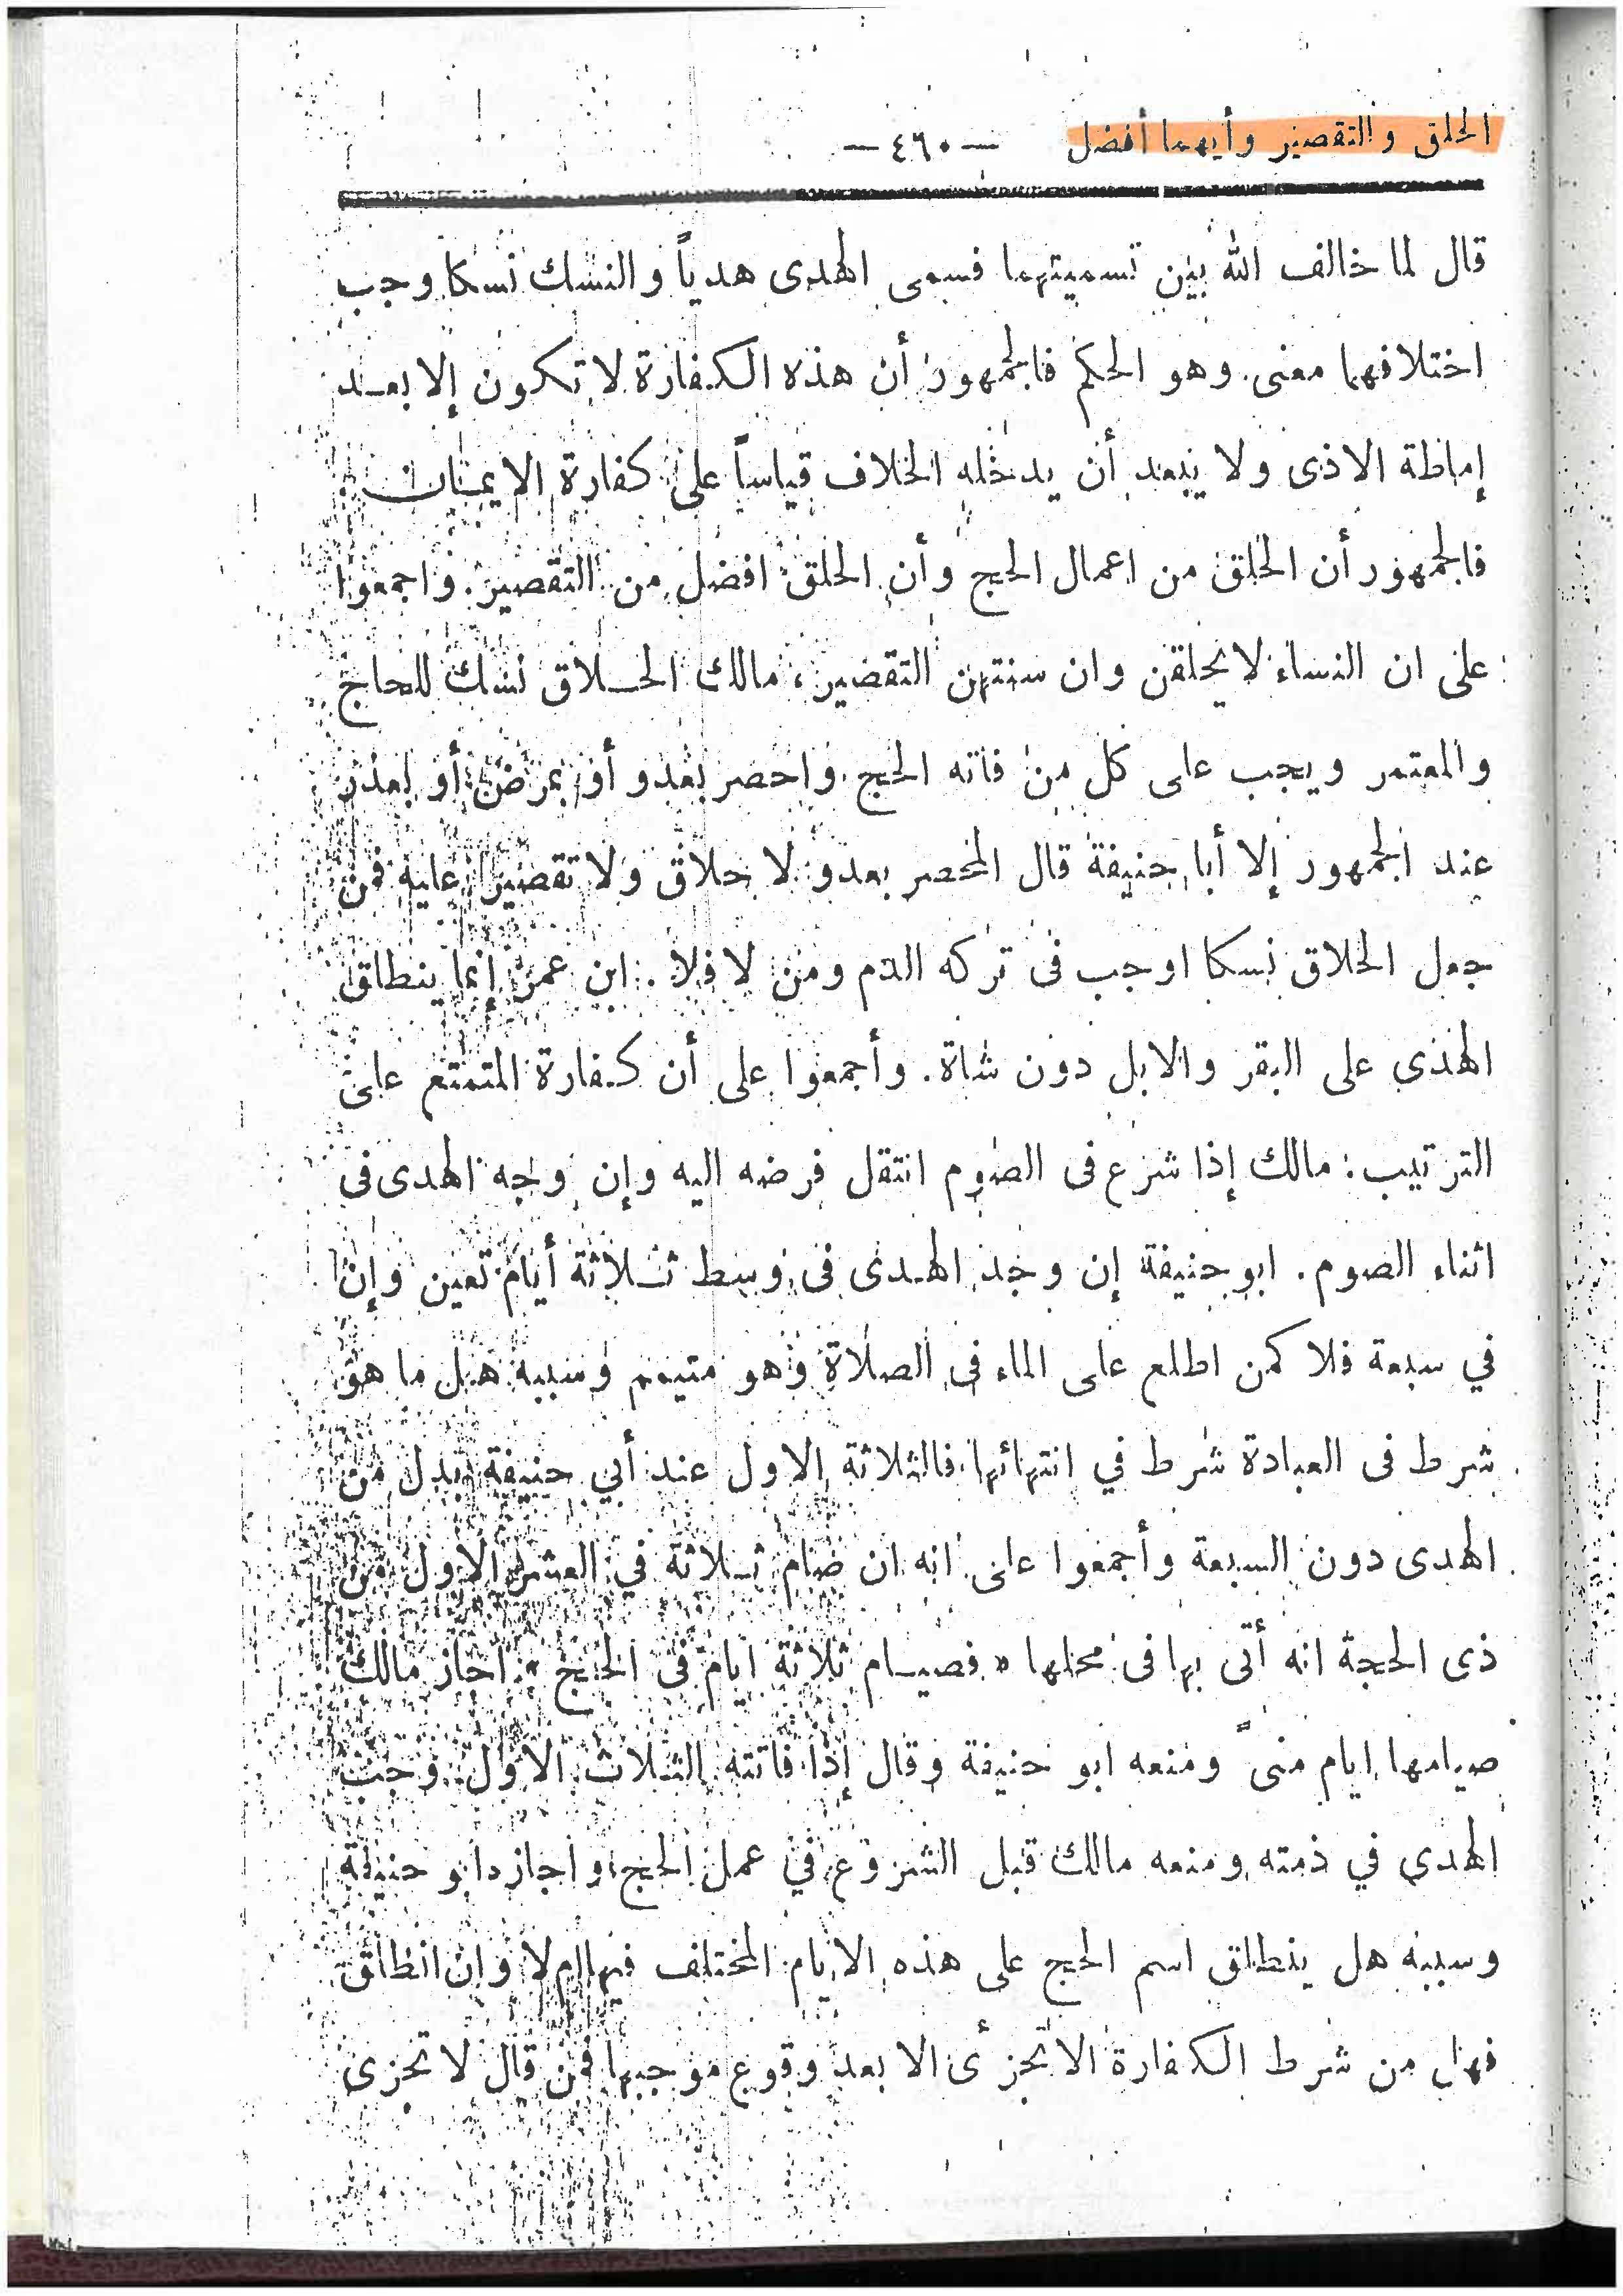 الحلق والتقصير وأيهما أفضل — ٤٦٠ —
قال لما خالف الله بين تسميتهما فسمى الهدى هدياً والنسك نسكا وجب
اختلافهما معنى. وهو الحكم فالجمهور أن هذه الكفارة لا تكون إلا بعد
إماطة الاذى ولا يبعد أن يدخله الخلاف قياساً على كفارة الايمان
فالجمهور أن الحلق من اعمال الحج وأن الحلق افضل من التقصير. واجمعوا
على ان النساء لا يحلقن وان سنتهن التقصير، مالك الحلاق نسك للحاج
والمعتمر ويجب على كل من فاته الحج. واحصر بعدو أو بمرض أو بعذر
عند الجمهور إلا أبا حنيفة قال المحصر بعدو لا حلاق ولا تقصير عليه فمن
جعل الحلاق نسكا اوجب فى تركه الدم ومن لا فلا. ابن عمر إنما ينطلق
الهدى على البقر والابل دون شاة. وأجمعوا على أن كفارة المتمتع على
الترتيب: مالك إذا شرع فى الصوم انتقل فرضه اليه وإن وجه الهدى فى
اثناء الصوم. ابو حنيفة إن وجد الهدى فى وسط ثلاثة أيام تعين وإن
في سبعة فلا كمن اطلع على الماء فى الصلاة وهو متيمم وسببه هل ما هو
شرط فى العبادة شرط في انتهائها فالثلاثة الاول عند أبي حنيفة بدل من
الهدى دون السبعة وأجمعوا على انه ان صام ثلاثة في العشر الاول من
ذى الحجة انه أتى بها فى محلها « فصيام ثلاثة ايام فى الحج » اجاز مالك
صيامها ايام منىً ومنعه ابو حنيفة وقال إذا فاتته الثلاث الاول وجب
الهدى في ذمته ومنعه مالك قبل الشروع في عمل الحج واجازه ابو حنيفة
وسببه هل ينطلق اسم الحج على هذه الايام المختلف فيها ام لا وان انطلق
فهل من شرط الكفارة الا تجزئ الا بعد وقوع موجبها فمن قال لا تجزى